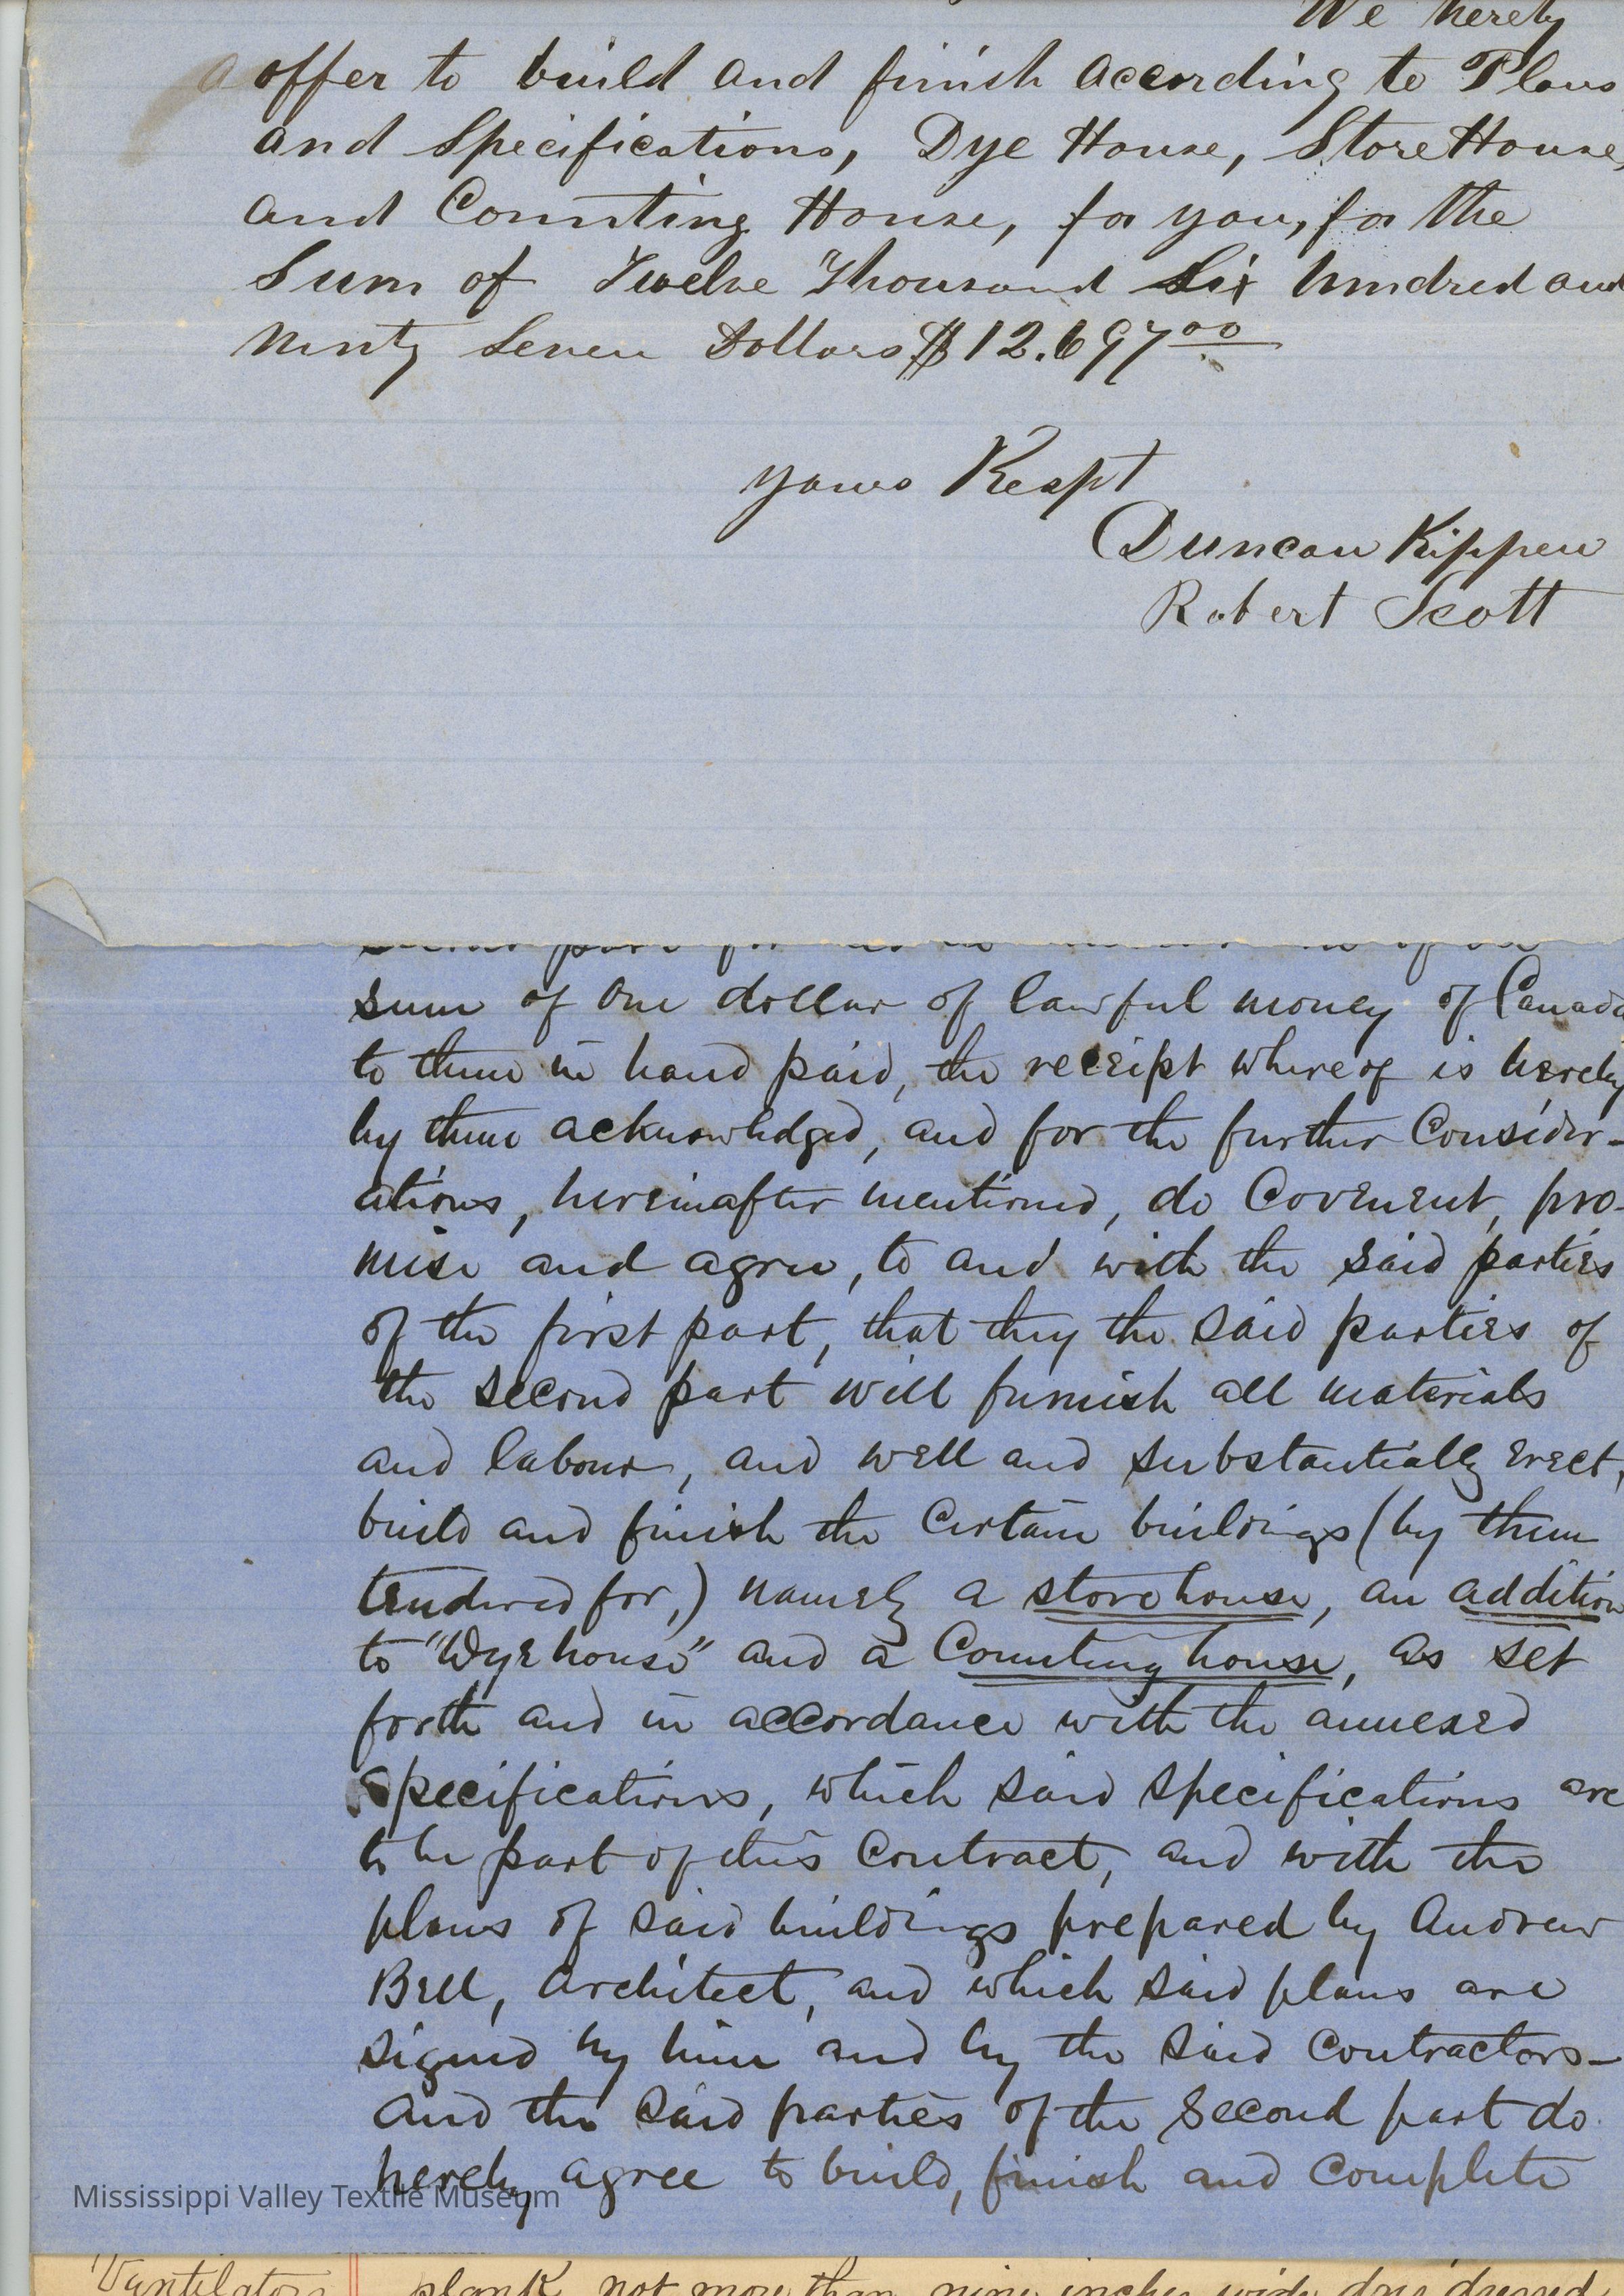 We hereby
offer to build and finish according to Plans
and Specifications, Dye House, Store House,
and Counting House, for you, for the
Sum of Twelve Thousand Six hundred and
Ninty Seven Dollars $12.697.00
yours Respt
Duncan Kippen
Robert Scott
sum of one dollar of lawful money of Canada
to them in hand paid, the receipt whereof is hereby
by them acknowledged, and for the further Consider-
ations, hereinafter mentioned, do Covenent, pro-
mise and agree, to and with the said parties
of the first part, that they the said parties of
the second part will furnish all materials
and labour, and well and substantially erect,
build and finish the certain buildings (by them
tendered for,) namely a storehouse, an addition
to "Dyehouse" and a Counting house, as set
forth and in accordance with the annexed
specifications, which said specifications are
to be part of this Contract, and with the
plans of said buildings prepared by Andrew
Bell, Architect, and which said plans are
signed by him and by the said contractors—
And the said parties of the second part do
hereby agree to build, finish and complete
Mississippi Valley Textile Museum
Ventilators plank not more than nine inches wide dry dressed